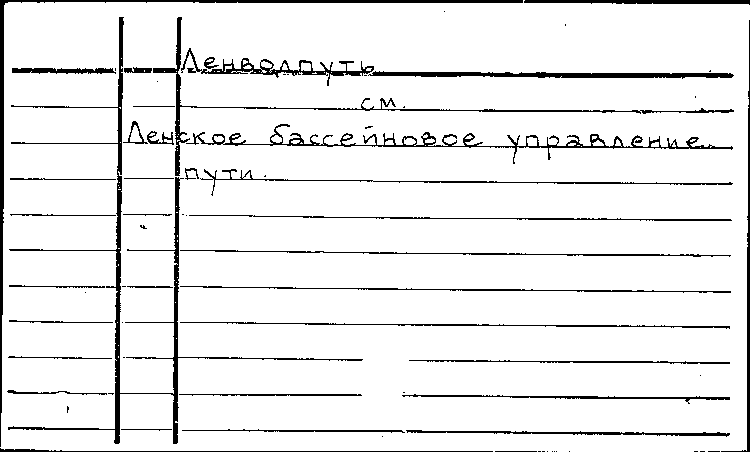 Ленводпуть
см.
Ленское бассейновое управление
пути.